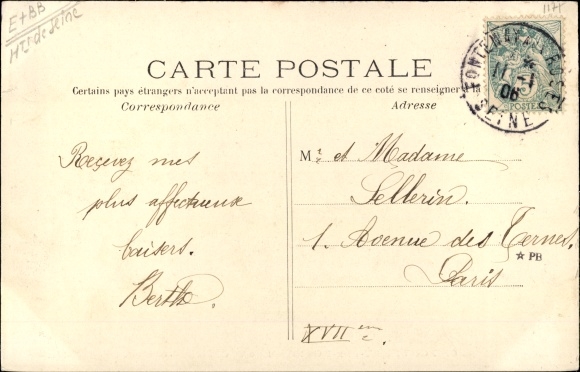 E+BB
Hts de Seine
1175
CARTE POSTALE
Certains pays étrangers n'acceptant pas la correspondance de ce coté se renseigner
Correspondance
Adresse
FONTENAY AUX ROSES
11 -1
06
SEINE
5
POSTES
Recevez mes
plus affectueux
baisers.
Berthe.
Mr et Madame
Sellerin.
1. Avenue des Ternes.
☆ PB
Paris
XVII eme.